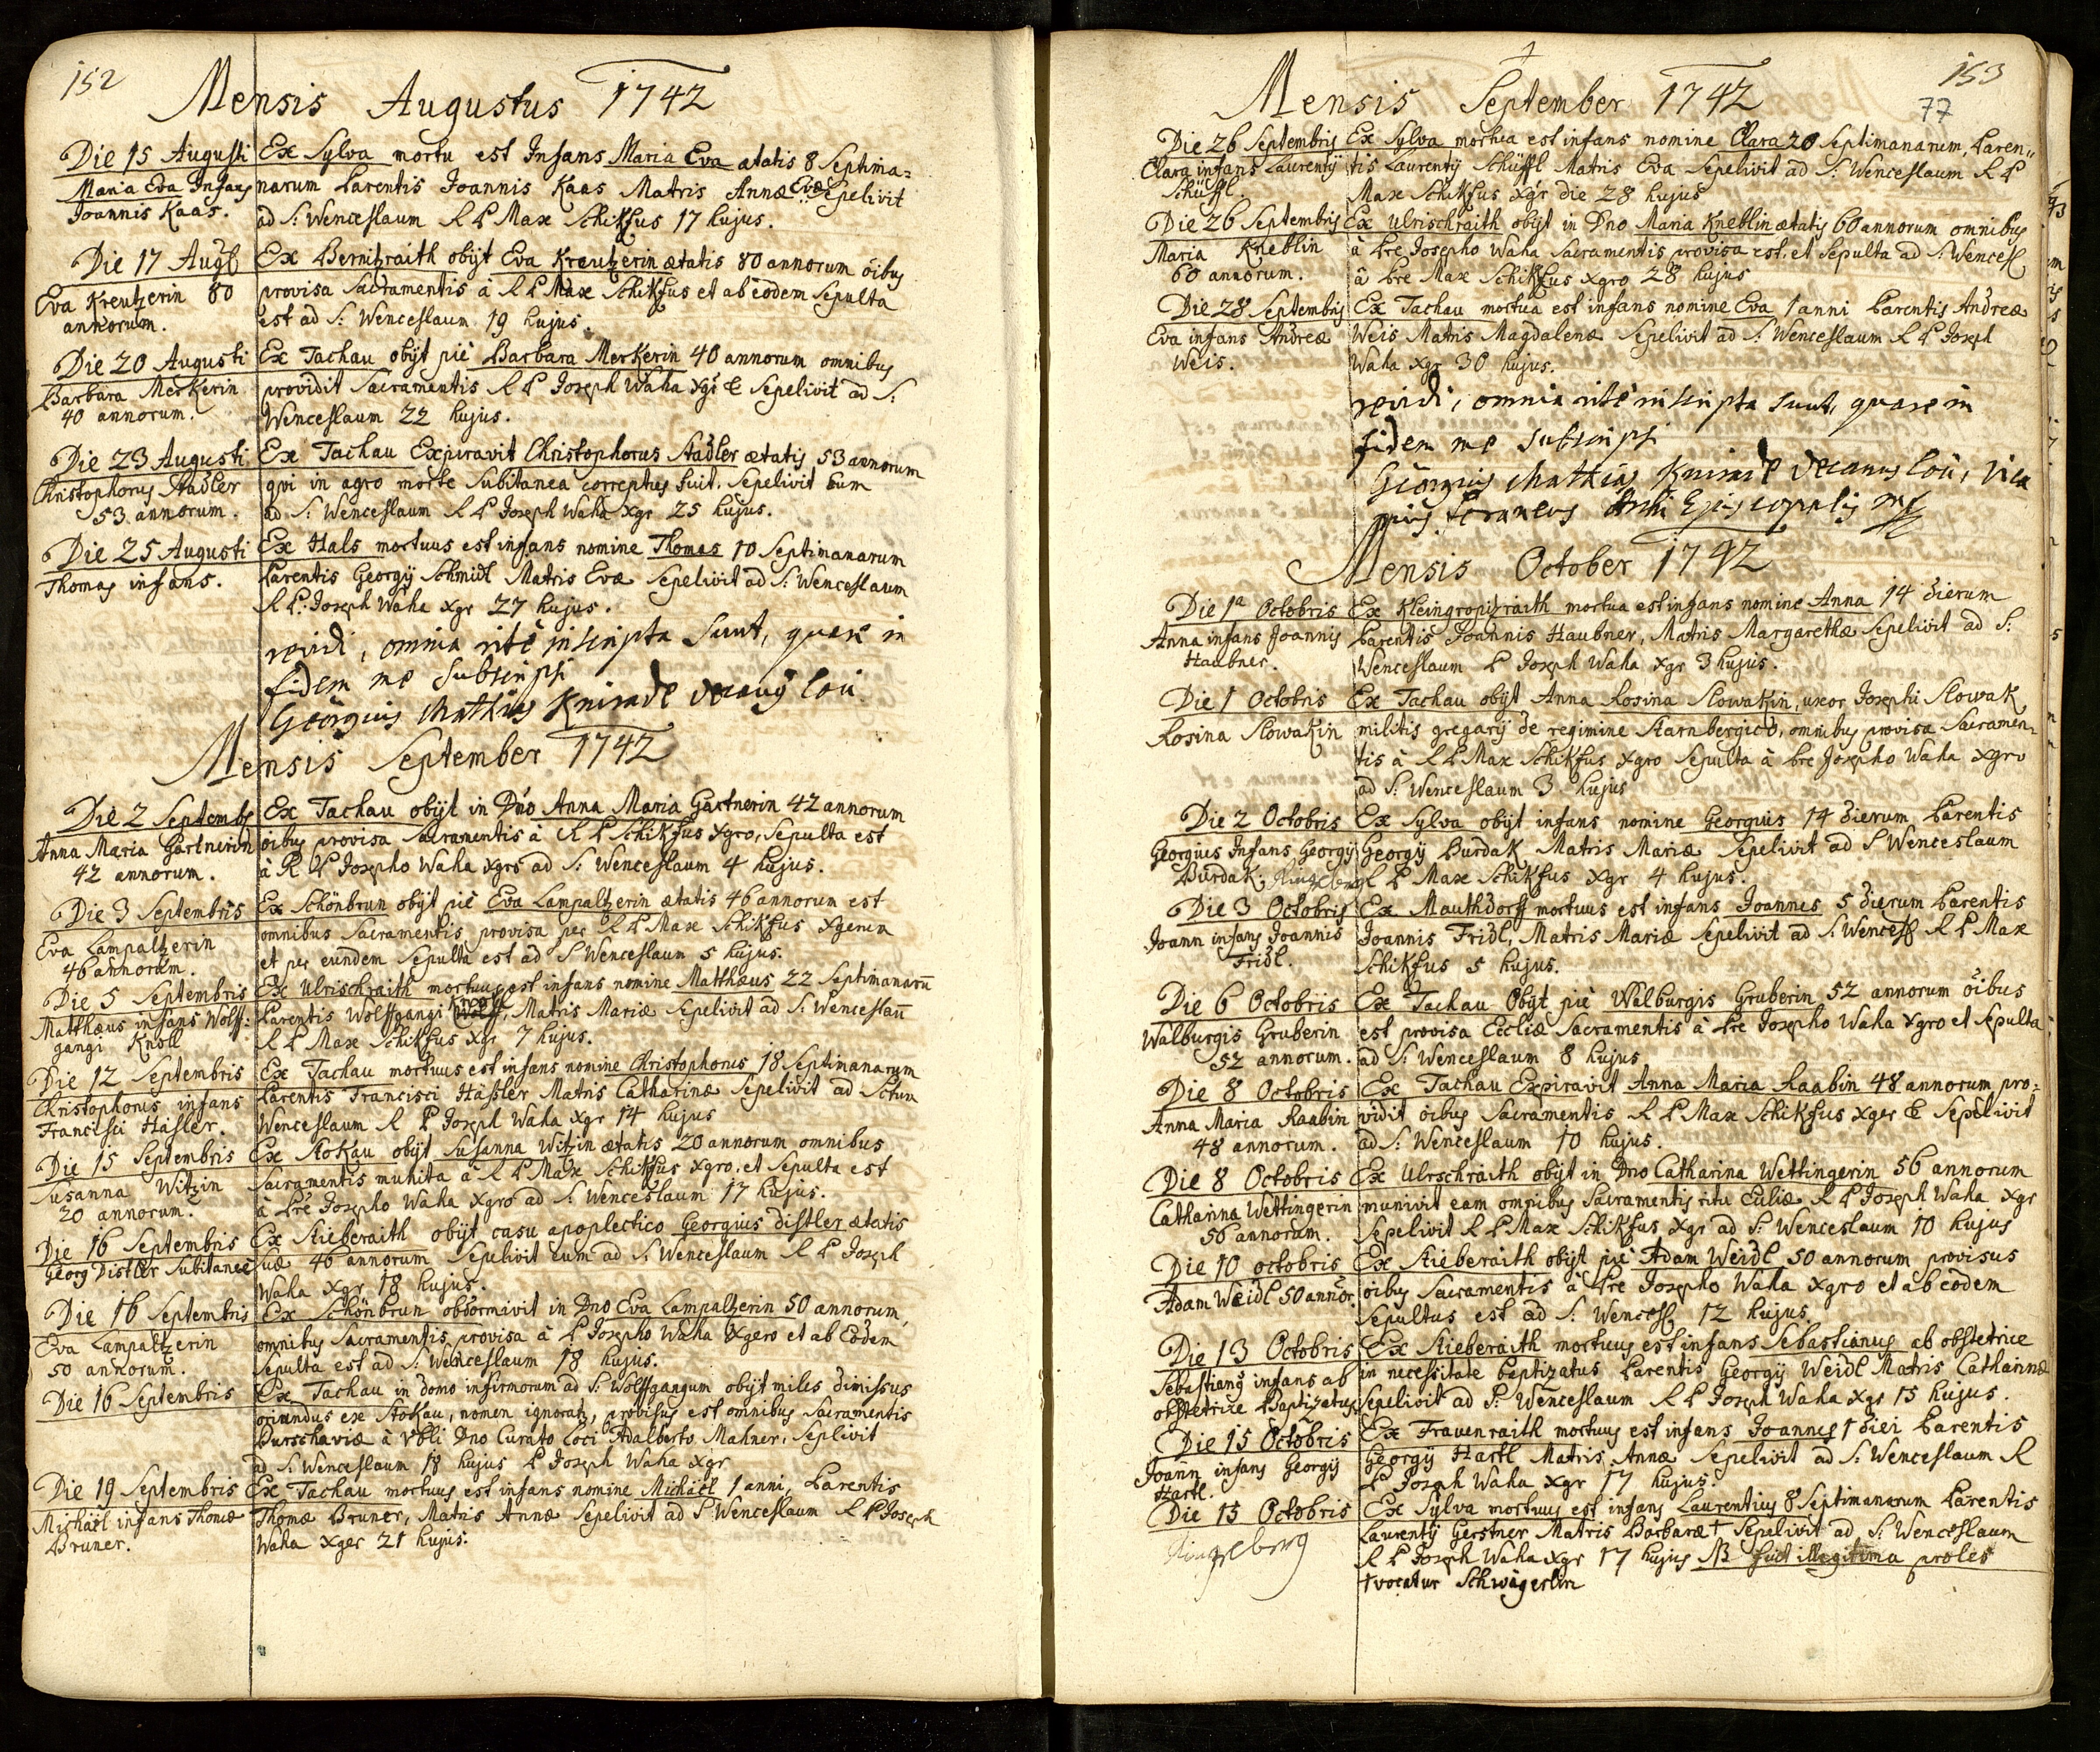 152
Mensis Augustus 1742
Die 15 Augusti
Maria Eva Infans
Joannis Kaas.
Ex Sylva mortu est Infans Maria Eva ætatis 8 Septima=
narum Parentis Joannis Kaas Matris Annæ Evæ Sepelivit
ad S: Wenceslaum R P Max Schikfus 17 hujus.
Die 17 Aug
Eva Kreutzerin 80
annorum.
Ex Bernitzraith obijt Eva Kreutzerin ætatis 80 annorum oibus
provisa Sacramentis à R P Max Schikfus et ab eodem Sepulta
est ad S: Wenceslaum 19 hujus.
Die 20 Augusti
Barbara Merkerin
40 annorum.
Ex Tachau obijt piè Barbara Merkerin 40 annorum omnibus
providit Sacramentis R P Joseph Waha Xgr & Sepelivit ad S:
Wenceslaum 22 hujus.
Die 23 Augusti
Christophorus Stadler
53 annorum.
Ex Tachau Expiravit Christophorus Stadler ætatis 53 annorum
qui in agro morte Subitanea correptus fuit. Sepelivit Eum
ad S: Wenceslaum R P Joseph Waha Xgr 25 hujus.
Die 25 Augusti
Thomas infans.
Ex Hals mortuus est infans nomine Thomas 10 Septimanarum
Parentis Georgij Schmidl Matris Evæ Sepelivit ad S: Wenceslaum
R P: Joseph Waha Xgr 27 hujus.
revidi, omnia ritè inscripta sunt, quare in
fidem me subscripsi
Georgius Mathias Knirade decanus loci
Mensis September 1742
Die 2 Septembs
Anna Maria Gärtnerin
42 annorum.
Ex Tachau obijt in Dno Anna Maria Gärtnerin 42 annorum
oibus provisa Sacramentis à R P Schikfus Xgro, Sepulta est
à R P Josepho Waha Xgro ad S: Wenceslaum 4 hujus.
Die 3 Septembris
Eva Lampaltzerin
46 annorum.
Ex Schönbrun obijt piè Eva Lampaltzerin ætatis 46 annorum est
omnibus Sacramentis provisa per R P Max Schikfus Xgerum
et per eundem Sepulta est ad S Wenceslaum 5 hujus.
Die 5 Septembris
Matthæus infans Wolff:
gangi Knoll
Ex Ulrischraith mortuus est infans nomine Matthæus 22 Septimanarū
Knoll
Parentis Wolffgangi Wolff, Matris Mariæ Sepelivit ad S: Wenceslaū
R P Max Schikfus Xgr 7 hujus.
Die 12 Septembris
Christophorus infans
Francisci Häsler.
Ex Tachau mortuus est infans nomine Christophorus 18 Septimanarum
Parentis Francisci Häßler Matris Catharinæ Sepelivit ad Sctum
Wenceslaum R P Joseph Waha Xgr 14 hujus
Die 15 Septembris
Susanna Witzin
20 annorum.
Ex Stokau obijt Susanna Witzin ætatis 20 annorum omnibus
Sacramentis munita à R P Max Schikfus Xgro, et Sepulta est
à Pre Josepho Waha Xgro ad S: Wenceslaum 17 hujus.
Die 16 Septembris
Georg Distler Subitaneè
Ex Stieberaith obijt casu apoplectico Georgius Distler ætatis
suæ 46 annorum Sepelivit eum ad S: Wenceslaum R P Joseph
Waha Xgr 18 hujus.
Die 16 Septembris
Eva Lampaltzerin
50 annorum.
Ex Schönbrun obdormivit in Dno Eva Lampaltzerin 50 annorum,
omnibus Sacramentis provisa à P Josepho Waha Xgero et ab Eodem
Sepulta est ad S: Wenceslaum 18 hujus.
Die 16 Septembris
Ex Tachau in domo infirmorum ad S: Wolffgangum obijt miles dimissus
oriundus ex Stokau, nomen ignorat, provisus est omnibus Sacramentis
Purschaviæ à Vbli Dno Curato Loci Adalberto Mahner, Seplivit
ad S: Wenceslaum 18 hujus P Joseph Waha Xgr
Die 19 Septembris
Michäel infans Thomæ
Bruner.
Ex Tachau mortuus est infans nomine Michäel 1 anni, Parentis
Thomæ Bruner, Matris Annæ Sepelivit ad S Wenceslaum R P Joseph
Waha Xger 21 hujus.
153
77
Mensis September 1742
Die 26 Septembris
Clara infans Laurentij
Schüffl
Ex Sylva mortua est infans nomine Clara 20 Septimanarum, Paren„
tis Laurentij Schüffl Matris Eva Sepelivit ad S: Wenceslaum R P
Max Schikfus Xgr die 28 hujus
Die 26 Septembris
Maria Kneblin
60 annorum.
Ex Ulrischraith obijt in Dno Maria Kneblin ætatis 60 annorum omnibus
à Pre Josepho Waha Sacramentis provisa est, et Sepulta ad S: Wencesl
à Pre Max Schikfus Xgro 28 hujus
Die 28 Septembris
Eva infans Andreæ
Weis.
Ex Tachau mortua est infans nomine Eva 1 anni Parentis Andreæ
Weis Matris Magdalenæ Sepelivit ad S: Wenceslaum R P Joseph
Waha Xgr 30 hujus.
revidi, omnia ritè inscripta sunt, quare in
fidem me subscripsi
Georgius Mathias Knirade decanus loci, vica
rius foraneus Archi Episcopalis
Mensis October 1742
Die 1a Octobris
Anna infans Joannis
Haubner.
Ex Kleingropitzraith mortua est infans nomine Anna 14 dierum
Parentis Joannis Haubner, Matris Margarethæ Sepelivit ad S:
Wenceslaum P Joseph Waha Xgr 3 hujus.
Die 1 Octobris
Rosina Slowakin
Ex Tachau obijt Anna Rosina Slowakin, uxor Josephi Slowak
militis gregarij de regimine Starnbergico, omnibus provisa Sacramen=
tis à R P Max Schikfus Xgro Sepulta à Pre Josepho Waha Xgro
ad S: Wenceslaum 3 hujus
Die 2 Octobris
Georgius Infans Georgij
Burdak. Ringelberg
Ex Sylva obijt infans nomine Georgius 14 dierum Parentis
Georgij Burdak Matris Mariæ Sepelivit ad S Wenceslaum
R P Max Schikfus Xgr 4 hujus.
Die 3 Octobris
Joann infans Joannis
Fridl.
Ex Mauthdorff mortuus est infans Joannes 5 dierum Parentis
Joannis Fridl, Matris Mariæ Sepelivit ad S: Wencesl R P Max
Schikfus 5 hujus.
Die 6 Octobris
Walburgis Gruberin
52 annorum.
Ex Tachau Obijt piè Walburgis Gruberin 52 annorum oibus
est provisa Eccliæ Sacramentis à Pre Josepho Waha Xgro et Sepulta
ad S: Wenceslaum 8 hujus
Die 8 Octobris
Anna Maria Raabin
48 annorum.
Ex Tachau Expiravit Anna Maria Raabin 48 annorum pro=
vidit oibus Sacramentis R P Max Schikfus Xger & Sepelivit
ad S: Wenceslaum 10 hujus.
Die 8 Octobris
Catharina Wettingerin
56 annorum.
Ex Ulrschraith obijt in Dno Catharina Wettingerin 56 annorum
munivit eam omnibus Sacramentis ritu Ecliæ R P Joseph Waha Xgr
Sepelivit R P Max Schikfus Xgr ad S: Wenceslaum 10 hujus
Die 10 octobris
Adam Weidl 50 annor.
Ex Stieberaith obijt piè Adam Weidl 50 annorum provisus
oibus Sacramentis à Pre Josepho Waha Xgro et ab eodem
Sepultus est ad S: Wencesl 12 hujus.
Die 13 Octobris
Sebastiang infans ab
obstetrice Baptizatus
Ex Stieberaith mortuus est infans Sebastianus ab obstetrice
in necessitate baptizatus Parentis Georgij Weidl Matris Catharinæ
Sepelivit ad S: Wenceslaum R P Joseph Waha Xgr 15 hujus.
Die 15 Octobris
Joann infans Georgij
Hartl.
Ex Frauenraith mortuus est infans Joannes 1 diei Parentis
Georgij Hartl Matris Annæ Sepelivit ad S: Wenceslaum R
P Joseph Waha Xgr 17 hujus.
Die 15 Octobris
Ringelberg
Ex Sylva mortuus est infans Laurentius 8 Septimanarum Parentis
Laurentij Gerstner Matris Barbaræ † Sepelivit ad S: Wenceslaum
R P Joseph Waha Xgr 17 hujus NB fuit illegitima proles
† vocatur Schwägerlin